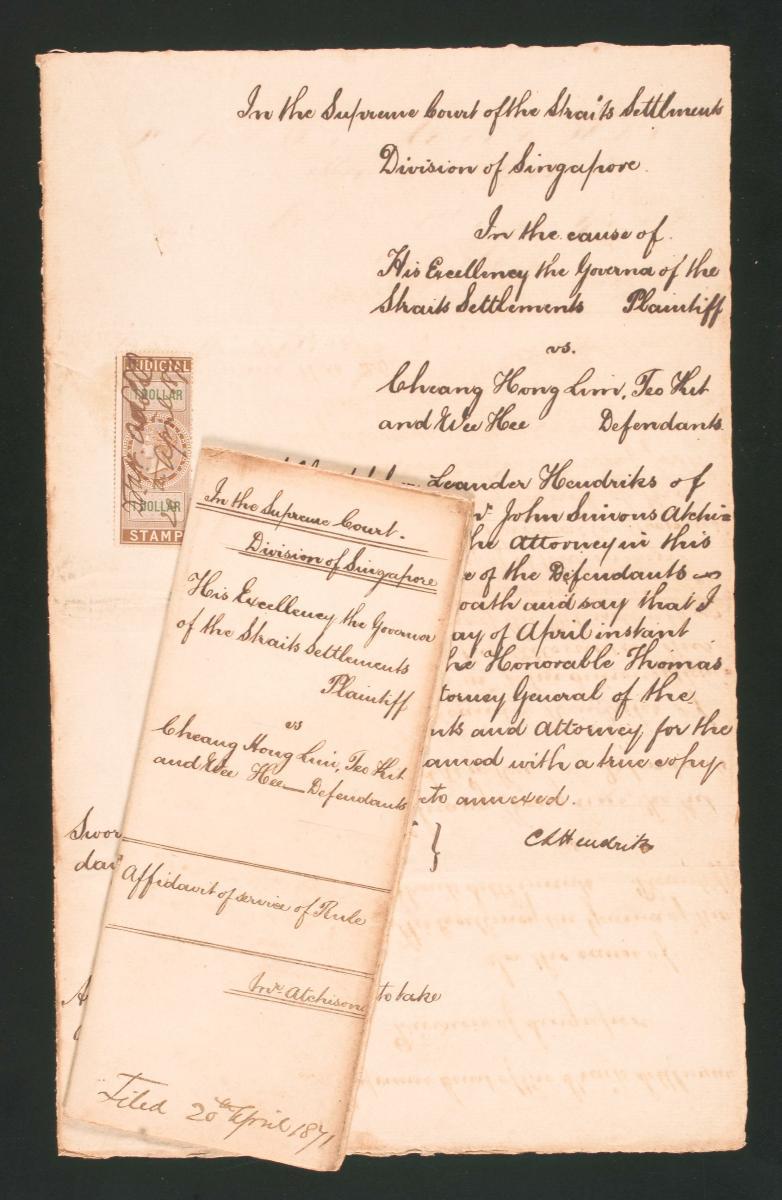 In the Supreme Court of the Straits Settlements
Division of Singapore.
In the cause of
His Excellency the Governor of the
Straits Settlements Plaintiff
vs.
Cheang Hong Lim, Teo Kit
and Wee Hee Defendants.
Leander Hendriks of
John Simons Atchi=
the attorney in this
e of the Defendants
oath and say that I
ay of April instant
he Honorable Thomas
torney General of the
nts and attorney for the
amed with a true copy
eto annexed.
C L Hendriks
Swor
day
A
to take
JUDICIAL
1 DOLLAR
1 DOLLAR
STAMP
In the Supreme Court.
Division of Singapore
His Excellency the Governor
of the Straits Settlements
Plaintiff
vs
Cheang Hong Lim, Teo Kit
and Wee Hee — Defendants
Affidavit of service of Rule
Mr. Atchison
Filed 20th April 1871